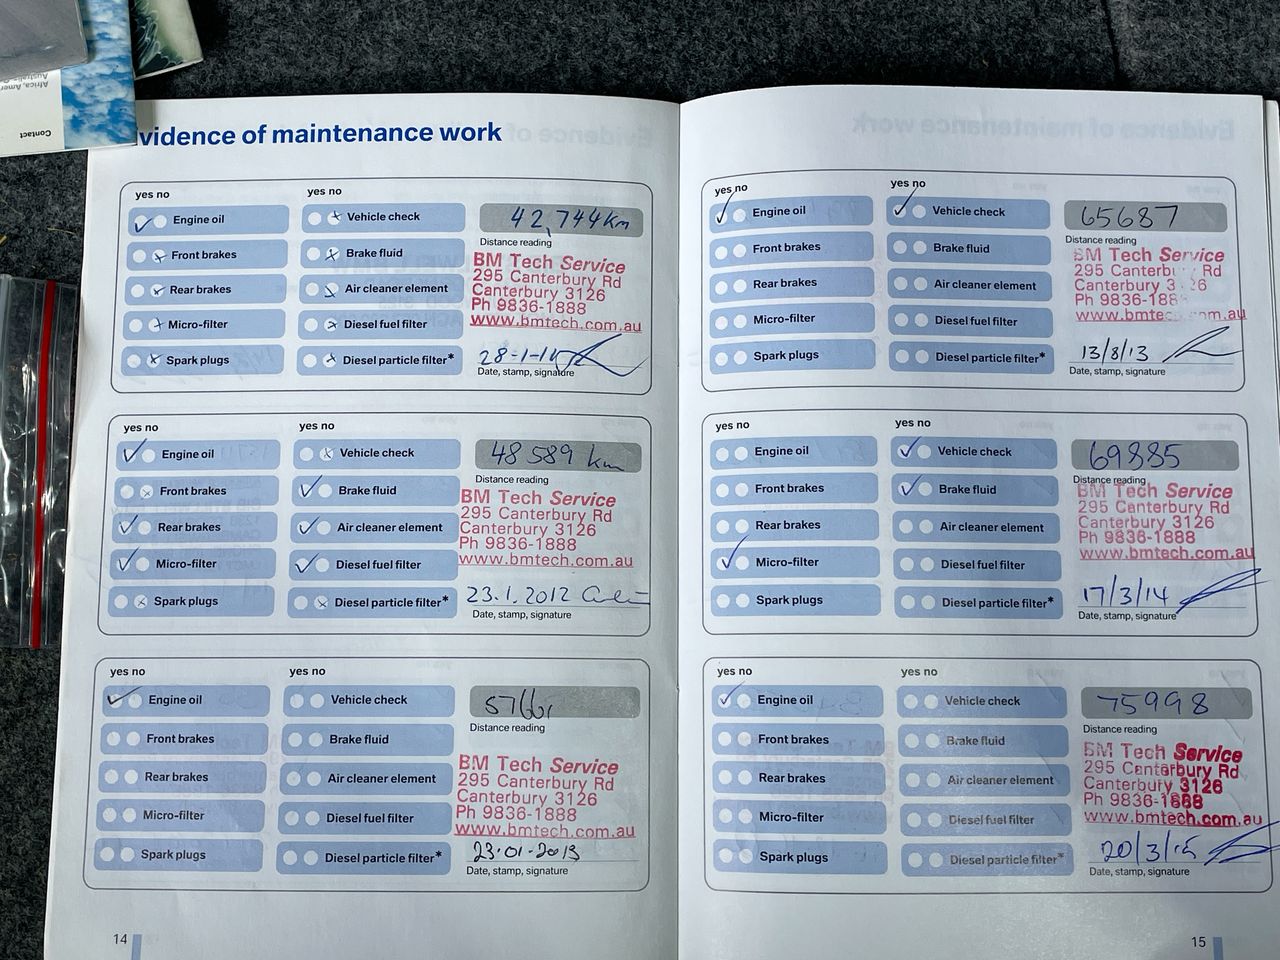 Contact
Africa, Amer
Evidence of maintenance work
yes no
yes no
Engine oil
Vehicle check
42,744 km
Distance reading
Front brakes
Brake fluid
Rear brakes
Air cleaner element
Micro-filter
Diesel fuel filter
Spark plugs
Diesel particle filter*
BM Tech Service
295 Canterbury Rd
Canterbury 3126
Ph 9836-1888
www.bmtech.com.au
Date, stamp, signature
yes no
yes no
Engine oil
Vehicle check
48 589 km
Distance reading
Front brakes
Brake fluid
Rear brakes
Air cleaner element
Micro-filter
Diesel fuel filter
Spark plugs
Diesel particle filter*
BM Tech Service
295 Canterbury Rd
Canterbury 3126
Ph 9836-1888
www.bmtech.com.au
23.1.2012
Date, stamp, signature
yes no
yes no
Engine oil
Vehicle check
Distance reading
Front brakes
Brake fluid
Rear brakes
Air cleaner element
Micro-filter
Diesel fuel filter
Spark plugs
Diesel particle filter*
BM Tech Service
295 Canterbury Rd
Canterbury 3126
Ph 9836-1888
www.bmtech.com.au
23-01-2013
Date, stamp, signature
14
yes no
yes no
Engine oil
Vehicle check
65687
Distance reading
Front brakes
Brake fluid
Rear brakes
Air cleaner element
Micro-filter
Diesel fuel filter
Spark plugs
Diesel particle filter*
BM Tech Service
295 Canterbury Rd
Canterbury 3126
Ph 9836-188
www.bmtech.com.au
13/8/13
Date, stamp, signature
yes no
yes no
Engine oil
Vehicle check
69885
Distance reading
Front brakes
Brake fluid
Rear brakes
Air cleaner element
Micro-filter
Diesel fuel filter
Spark plugs
Diesel particle filter*
BM Tech Service
295 Canterbury Rd
Canterbury 3126
Ph 9836-1888
www.bmtech.com.au
17/3/14
Date, stamp, signature
yes no
yes no
Engine oil
Vehicle check
75998
Distance reading
Front brakes
Brake fluid
Rear brakes
Air cleaner element
Micro-filter
Diesel fuel filter
Spark plugs
Diesel particle filter*
BM Tech Service
295 Canterbury Rd
Canterbury 3126
Ph 9836-1888
www.bmtech.com.au
20/3/15
Date, stamp, signature
15